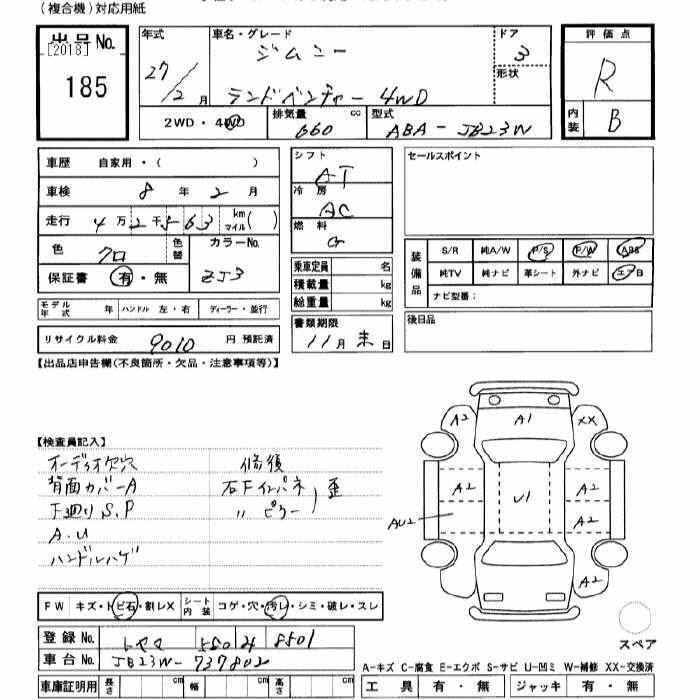 (複合機)対応用紙
出品No.
[2018]
185
年式
27/2月
車名・グレード
ジムニー
ランドベンチャー 4WD
ドア
3
形状
2WD・4WD
排気量
660
cc
型式
ABA-JB23W
評価点
R
内装
B
車歴 自家用・( )
車検 8年2月
走行 4万2千563 km マイル( )
色 クロ
色替
カラーNo.
ZJ3
保証書 有・無
モデル年式 年 ハンドル 左・右 ディーラー・並行
リサイクル料金 9010 円 預託済
シフト
AT
冷房
AC
燃料
G
乗車定員 名
積載量 kg
総重量 kg
書類期限
11月末日
セールスポイント
装備品
S/R 純A/W P/S P/W ABS
純TV 純ナビ 革シート 外ナビ エアB
ナビ型番:
後日品
【出品店申告欄(不良箇所・欠品・注意事項等)】
【検査員記入】
オーディオ欠穴
背面カバーA
下廻りS.P
A.U
ハンドルハゲ
修復
右Fインパネ
〃 ピラー
歪
A2 A1 XX
A2 A2
U1
AU2 A2
A2
スペア
FW キズ・トビ石・割レX シート内装 コゲ・穴・汚レ・シミ・破レ・スレ
登録No. トヤマ 580 さ 8501
車台No. JB23W-737802
車庫証明用 長さ cm 幅 cm 高さ cm
A-キズ C-腐食 E-エクボ S-サビ U-凹ミ W-補修 XX-交換済
工具 有・無 ジャッキ 有・無